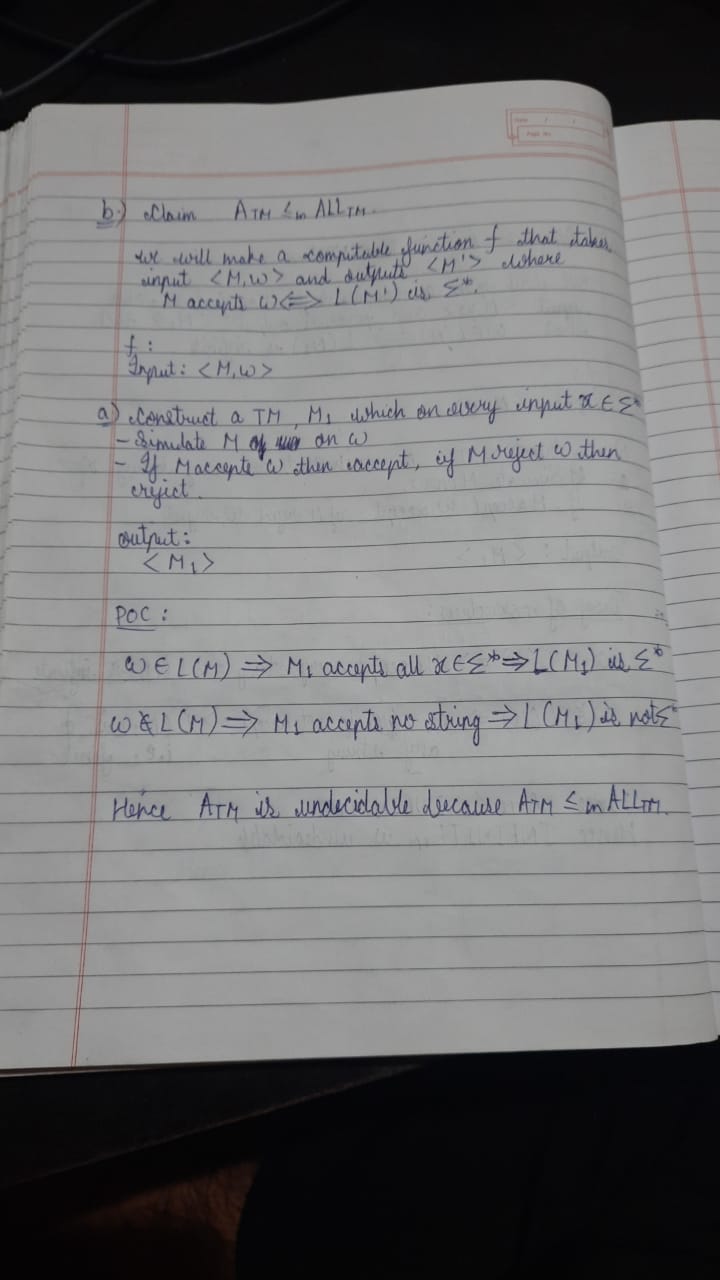 Date / /
Page No.
b.) Claim A_TM ≤m ALL_TM.
we will make a computable function f that takes
input <M,w> and outputs <M'> where
M accepts w <=> L(M') is Σ*.
f :
Input: <M,w>
a) Construct a TM, M₁ which on every input x ∈ Σ*
- Simulate M on w
- If M accepts w then accept, if M reject w then
reject.
output:
<M₁>
POC :
w ∈ L(M) => M₁ accepts all x ∈ Σ* => L(M₁) is Σ*
w ∉ L(M) => M₁ accepts no string => L(M₁) is not Σ*
Hence A_TM is undecidable because A_TM ≤m ALL_TM.